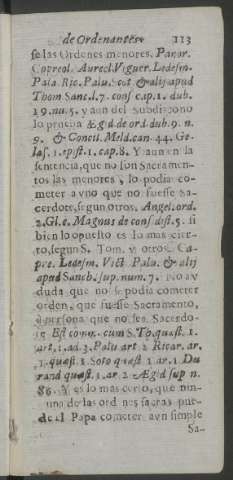 de Ordenantes. 113
se las Ordenes menores. Panor.
Capreol. Aureol. Viguer. Ledesm.
Pala. Ric. Palu. Scot. & alij apud
Thom Sanc. l. 7. cons cap. 1. dub.
19. nu. 5. y aun del Subdiacono
lo prueba Ægid. de ord. dub. 9. n.
9. & Concil. Meld. can. 44. Ge-
las. 1. epist. 1. cap. 8. Y aun en la
sentencia, que no son Sacramen-
tos las menores, lo podia co-
meter a vno que no fuesse Sa-
cerdote, segun otros. Angel. ord.
2. Gl. e. Magnus de cons dist. 5. si
bien lo opuesto es lo mas cier-
to, segun S. Tom. y otros. Ca-
pre. Ledesm. Vict. Palu. & alij
apud Sanch. sup. num. 7. No ay
duda que no se podia cometer
orden, que fuesse Sacramento,
à persona que no sea Sacerdo-
te Est comm. cum S. To. quæst. 1.
art. 1. ad. 3. Palu art. 2 Ricar. ar.
1. quæst. 1. Soto quæst 1. ar. 1 Du
rand quæst. 1. ar. 2. Ægid sup n.
86. Y es lo mas cierto, que nin-
una de las ordenes sacras pue-
de el Papa cometer a vn simple
Sa-